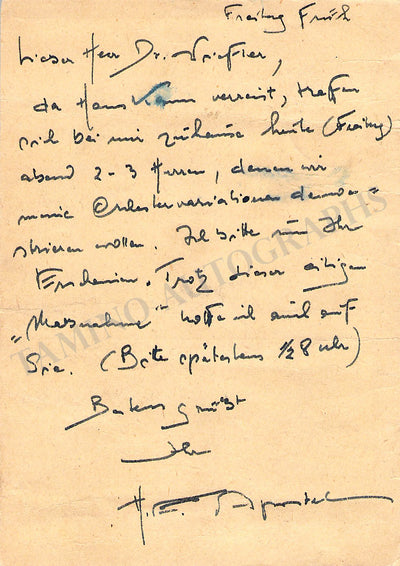 Freitag Früh
Lieber Herr Dr.
da Hans verreist, treffen
sich bei mir zuhause heute (Freitag)
abend 2-3 Herren, denen wir
meine Orchestervariationen demon=
strieren wollen. Ich bitte um Ihr
Erscheinen. Trotz dieser eiligen
„Massnahme" hoffe ich auf
Sie. (Bitte spätestens 1/2 8 Uhr)
Bestens grüßt
Ihr
H. E. Apostel
TAMINO AUTOGRAPHS